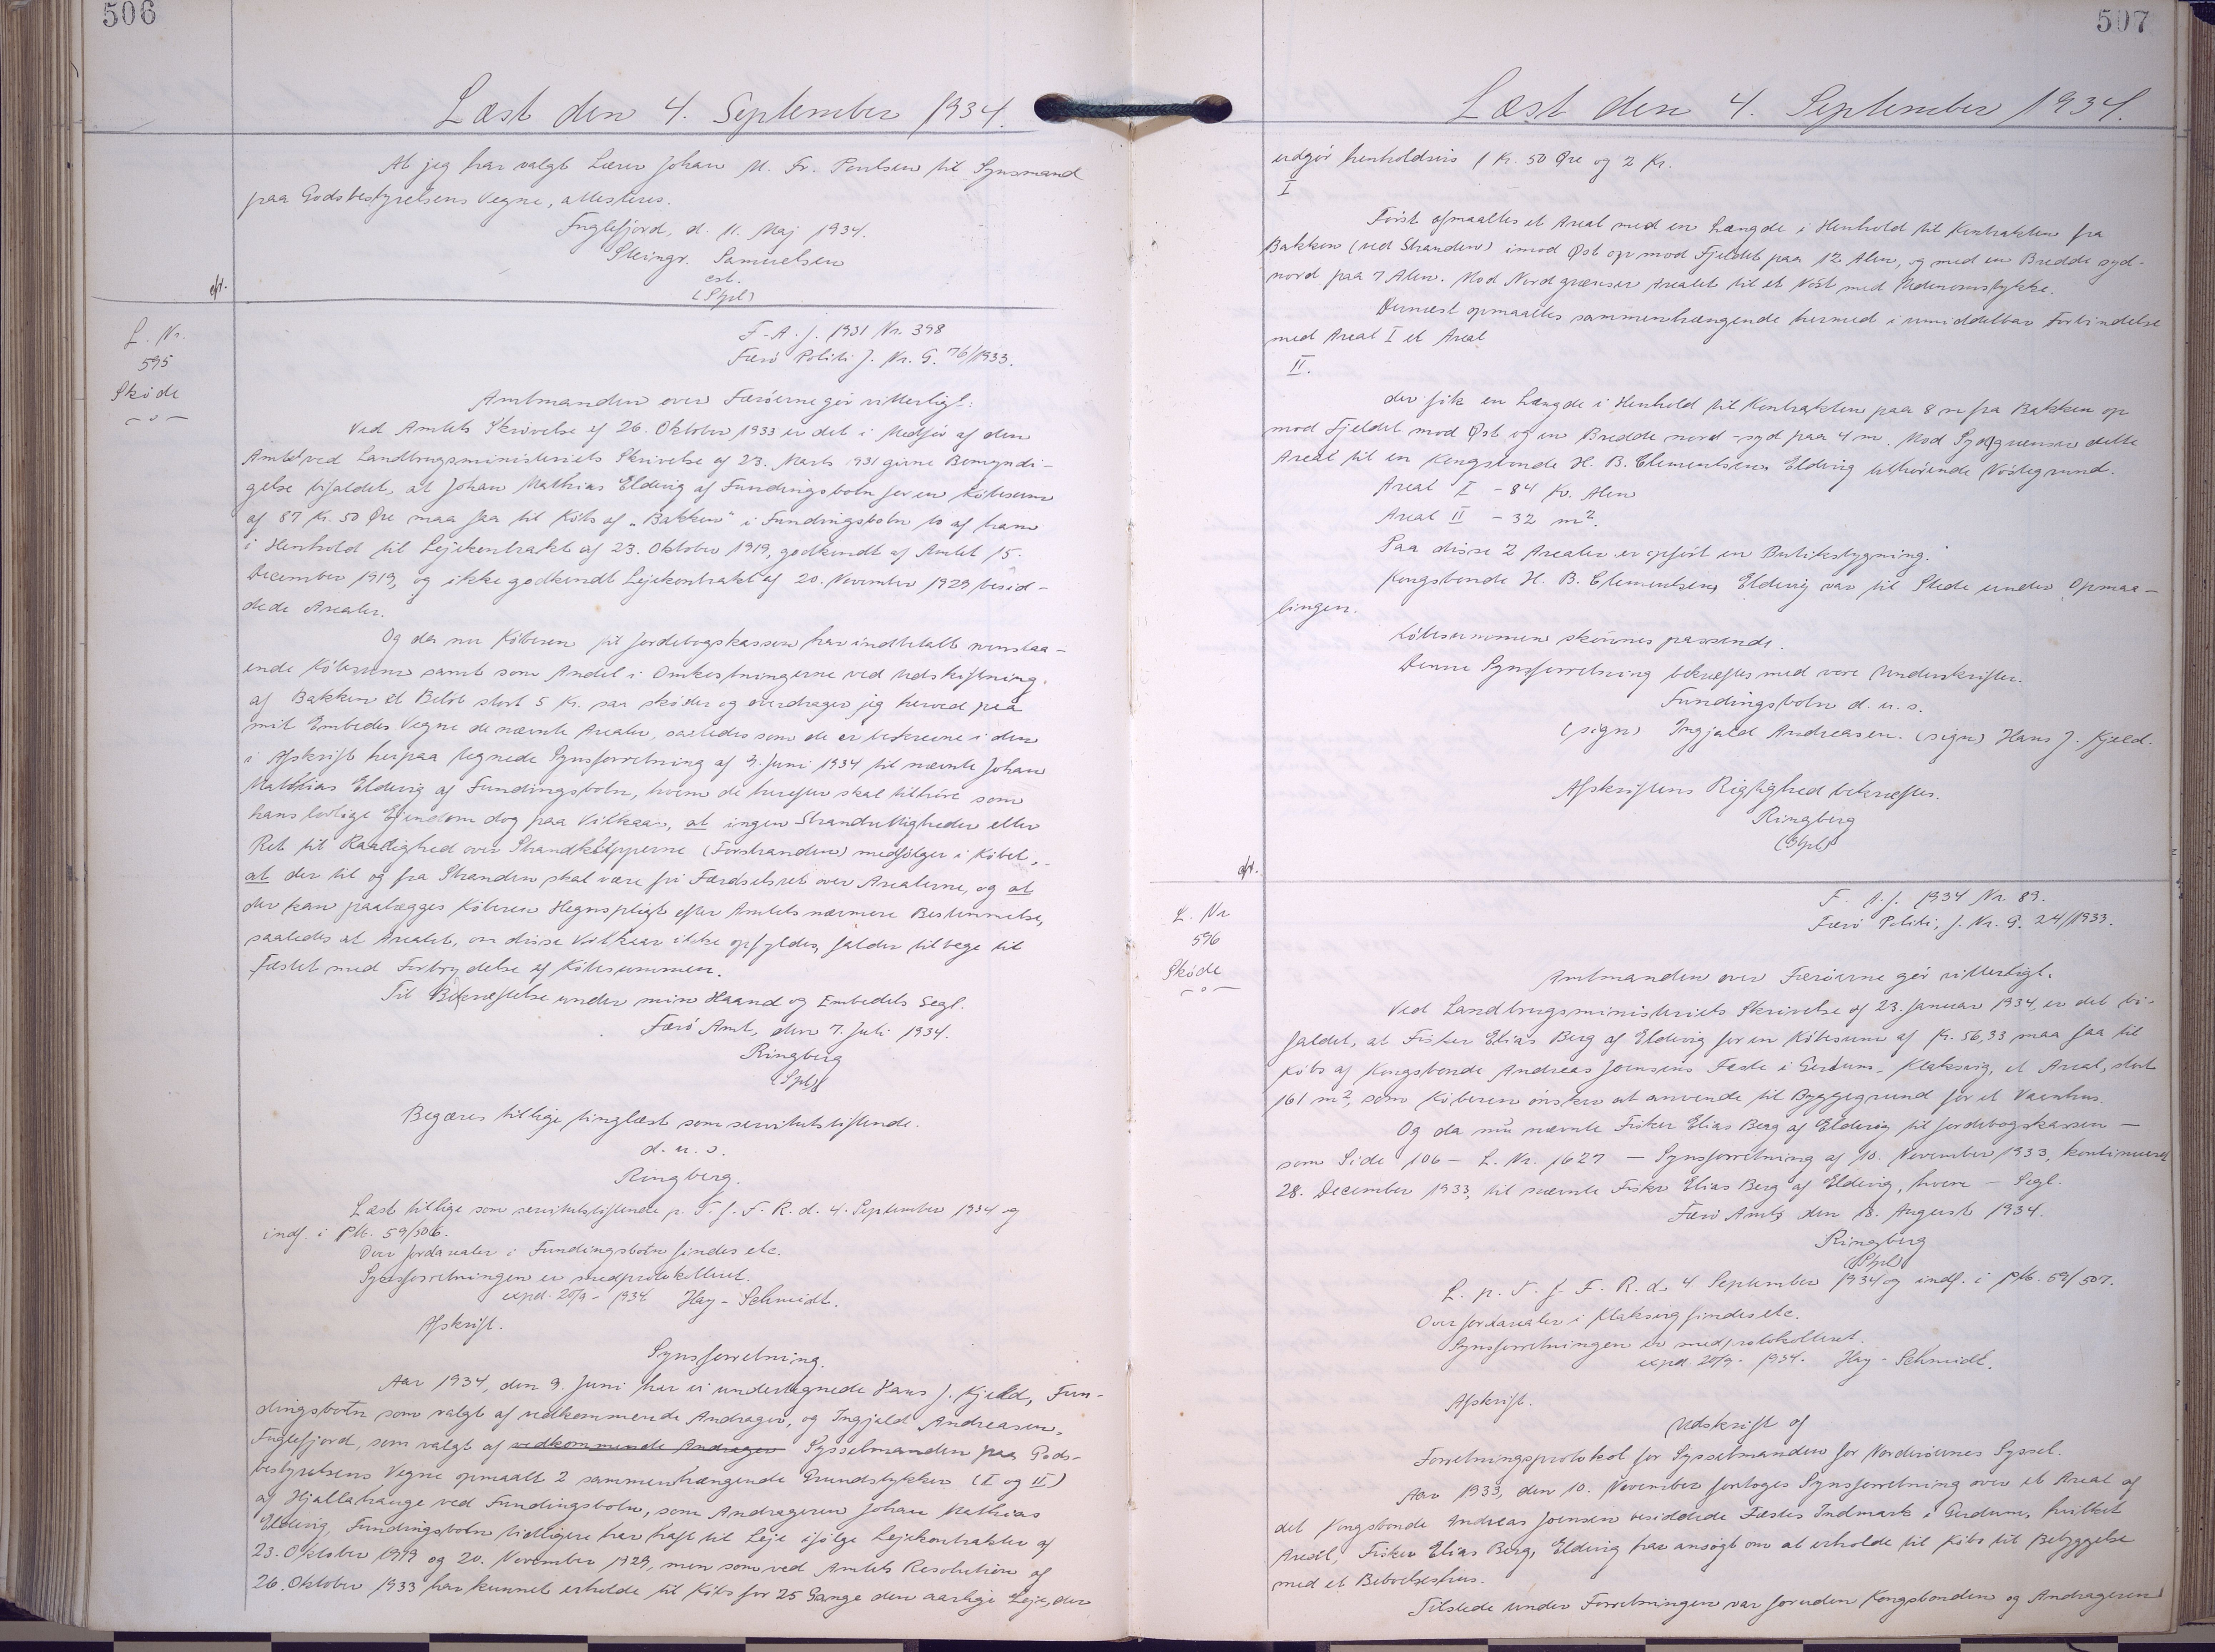 506
Læst den 4. September 1934.
At jeg har valgt Lærer Johan M. Fr. Poulsen til Synsmand
paa Godsbestyrelsens Vegne, attesteres.
Fuglefjord, d. 11. Maj 1934.
Steingr. Samuelsen
cst.
(Stpl)
L. Nr.
595
Skøde
F. A. J. 1931 Nr. 398
Færø Politi J. Nr. G. 76/1933.
Amtmanden over Færøerne gør vitterligt:
Ved Amtets Skrivelse af 26. Oktober 1933 er det i Medfør af den
Amtet ved Landbrugsministeriets Skrivelse af 23. Marts 1931 givne Bemyndi-
gelse bifaldet, at Johan Mathias Eldevig af Fundingsbotn for en Købesum
af 87 Kr. 50 Øre maa faa til Købs af "Bakken" i Fundingsbotn to af ham
i Henhold til Lejekontrakt af 23. Oktober 1919, godkendt af Amtet 15.
December 1919, og ikke godkendt Lejekontrakt af 20. November 1929 besid-
dede Arealer.
Og da nu Køberen til Jordebogskassen har indbetalt ovenstaa-
ende Købesum samt som Andel i Omkostningerne ved Udskiftning
af Bakken et Beløb stort 5 Kr. saa skøder og overdrager jeg herved paa
mit Embedes Vegne de nævnte Arealer, saaledes som de er beskrevne i den
i Afskrift herpaa tegnede Synsforretning af 9. Juni 1934 til nævnte Johan
Mathias Eldevig af Fundingsbotn, hvem de herefter skal tilhøre som
hans lovlige Ejendom dog paa Vilkaar, at ingen Strandrettigheder eller
Ret til Raadighed over Strandklipperne (Forstranden) medfølger i Købet,
at der til og fra Stranden skal være fri Færdselsret over Arealerne, og at
der kan paalægges Køberen Hegnspligt efter Amtets nærmere Bestemmelse,
saaledes at Arealet, om disse Vilkaar ikke opfyldes, falder tilbage til
Fæstet med Fortrydelse af Købesummen.
Til Bekræftelse under min Haand og Embedets Segl.
Færø Amt, den 7. Juli 1934.
Ringberg
(Stpl)
Begæres tillige tinglæst som servitutstiftende.
d. u. s.
Ringberg.
Læst tillige som servitutstiftende p. T. f. F. R. d. 4. September 1934 og
indf. i Ptk. 59/506.
Over Jordarealer i Fundingsbotn findes etc.
Synsforretningen er medprotokolleret.
expd. 20/9 - 1934. Hay-Schmidt.
Afskrift.
Synsforretning.
Aar 1934, den 9. Juni har vi undertegnede Hans J. Kjeld, Fun-
dingsbotn som valgt af vedkommende Andrager, og Ingjald Andreasen,
Fuglefjord, som valgt af vedkommende Andrager Sysselmanden paa Gods-
bestyrelsens Vegne opmaalt 2 sammenhængende Grundstykker (I og II)
af Hjallahauge ved Fundingsbotn, som Andrageren Johan Mathias
Eldevig, Fundingsbotn tidligere har haft til Leje ifølge Lejekontrakter af
23. Oktober 1919 og 20. November 1929, men som ved Amtets Resolution af
26. Oktober 1933 har kunnet erholde til Købs for 25 Gange den aarlige Leje, der
507
Læst den 4. September 1934.
udgør henholdsvis 1 Kr. 50 Øre og 2 Kr.
I
Først opmaaltes et Areal med en Længde i Henhold til Kontrakten fra
Bakken (ved Stranden) imod Øst op mod Fjeldet paa 12 Alen, og med en Bredde syd-
nord paa 7 Alen. Mod Nord grænser Arealet til et Nøst med
Dernæst opmaaltes sammenhængende hermed i umiddelbar Forbindelse
med Areal I et Areal
II.
der fik en Længde i Henhold til Kontrakten paa 8 m fra Bakken op
mod Fjeldet mod Øst og en Bredde nord-syd paa 4 m. Mod Syd grænser dette
Areal til en Kongsbonde H. B. Clementsen, Eldevig tilhørende Nøstegrund.
Areal I - 84 Kv. Alen
Areal II - 32 m².
Paa disse 2 Arealer er opført en Butiksbygning.
Kongsbonde H. B. Clementsen, Eldevig var til Stede under Opmaa-
lingen.
Købesummen skønnes passende.
Denne Synsforretning bekræftes med vore Underskrifter.
Fundingsbotn d. u. s.
(sign) Ingjald Andreasen. (sign) Hans J. Kjeld.
Afskriftens Rigtighed bekræftes.
Ringberg
(Stpl)
L. Nr
596
Skøde
F. A. J. 1934 Nr. 89.
Færø Politi, J. Nr. G. 24/1933.
Amtmanden over Færøerne gør vitterligt.
Ved Landbrugsministeriets Skrivelse af 23. Januar 1934, er det bi-
faldet, at Fisker Elias Berg af Eldevig for en Købesum af Kr. 56,33 maa faa til
Købs af Kongsbonde Andreas Joensens Fæste i Gerdum, Klaksvig, et Areal, stort
161 m², som Køberen ønsker at anvende til Byggegrund for et Vaanhus.
Og da nu nævnte Fisker Elias Berg af Eldevig til Jordebogskassen —
som Side 106 — L. Nr. 1627 — Synsforretning af 10. November 1933, kontinueret
28. December 1933, til nævnte Fisker Elias Berg af Eldevig, hvem — Segl.
Færø Amt, den 18. August 1934.
Ringberg
(Stpl)
L. p. T. f. F. R. d. 4 September 1934 og indf. i Ptk. 59/507.
Over Jordarealer i Klaksvig findes etc.
Synsforretningen er medprotokolleret.
expd. 20/9 - 1934. Hay-Schmidt.
Afskrift.
Udskrift af
Forretningsprotokol for Sysselmanden for Norderøernes Syssel.
Aar 1933, den 10. November foretoges Synsforretning over et Areal af
det Kongsbonde Andreas Joensen besiddede Fæstes Indmark i Gerdum, hvilket
Areal, Fisker Elias Berg, Eldevig har ansøgt om at erholde til Købs til Bebyggelse
med et Beboelseshus.
Tilstede under Forretningen var foruden Kongsbonden og Andrageren